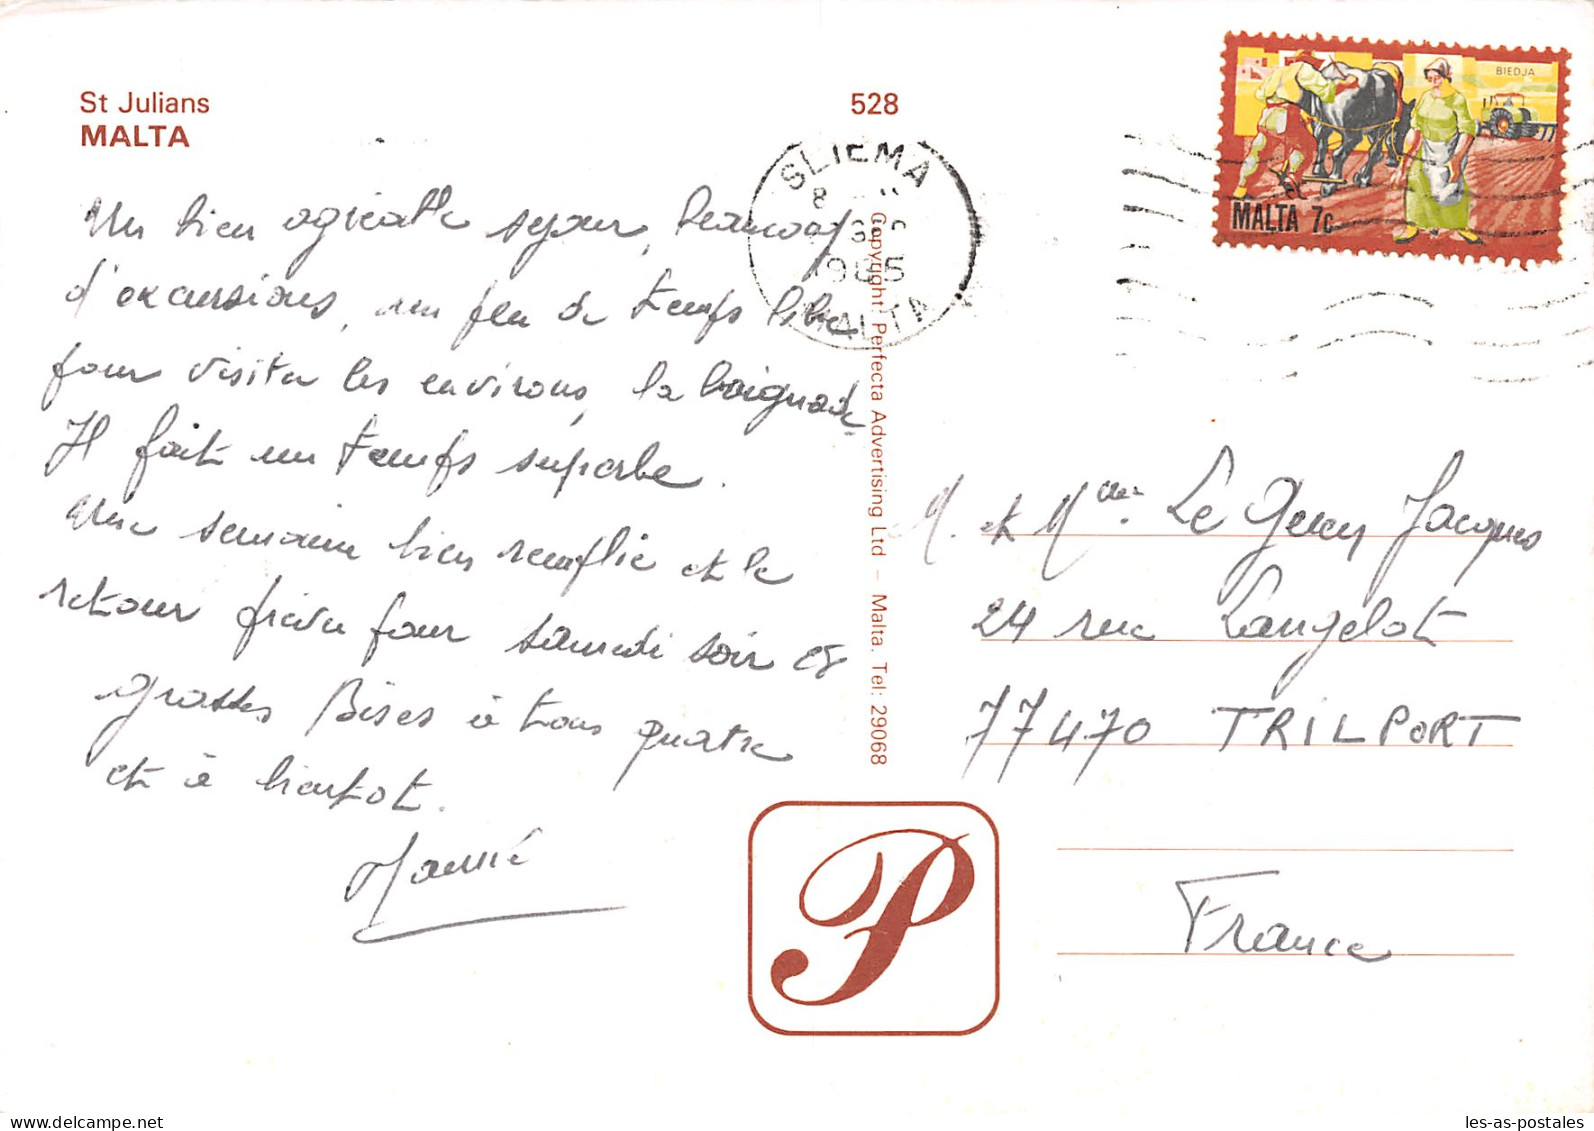 St Julians
MALTA
528
BIEDJA
MALTA 7c
SLIEMA
1985
MALTA
Un bien agréable sejour, beaucoup
d'excursions, un peu de temps libre
pour visiter les environs, la baignade.
Il fait un temps superbe.
Une semaine bien remplie et le
retour prévu pour samedi soir
grosses Bises à tous quatre
et à bientot.
Copyright Perfecta Advertising Ltd – Malta. Tel: 29068
M. et Mme. Le Jacques
24 rue Langelot
77470 TRILPORT
France
P
les-as-postales